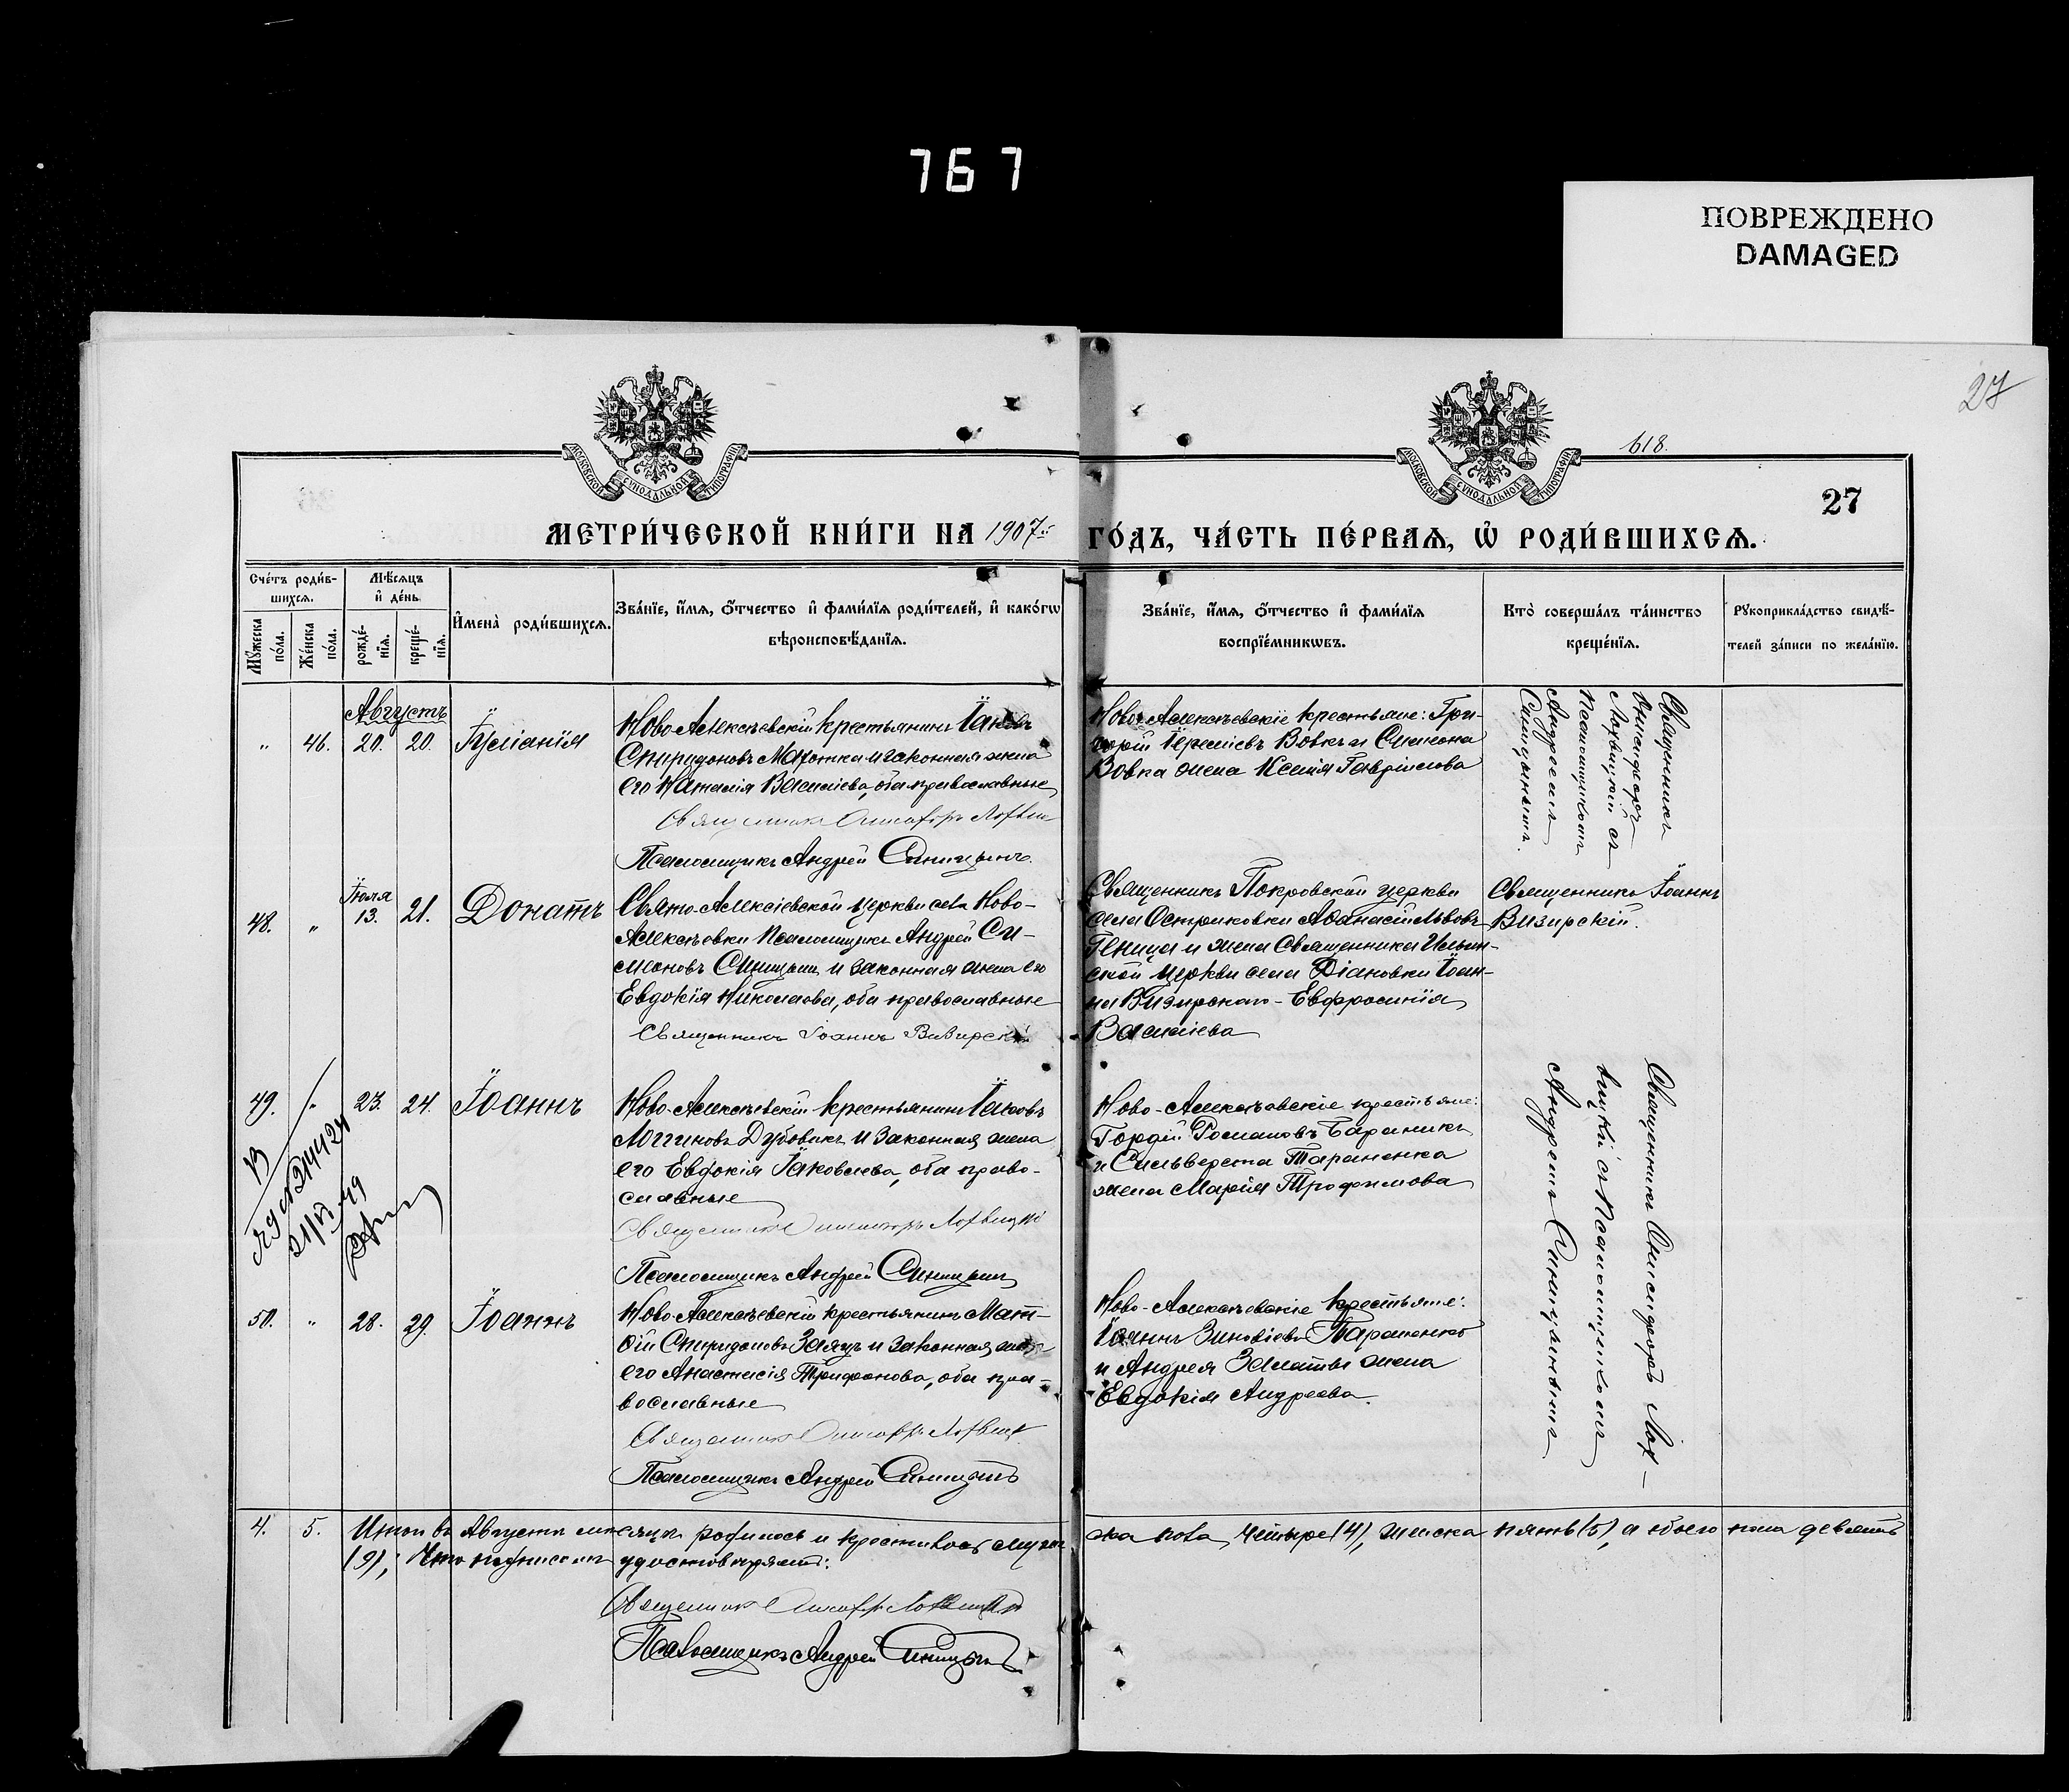 767
ПОВРЕЖДЕНО
DAMAGED
27
618.
27
МОСКОВСКОЙ СУНОДАЛЬНОЙ ТИПОГРАФІИ
МОСКОВСКОЙ СУНОДАЛЬНОЙ ТИПОГРАФІИ
МЕТРИ́ЧЕСКОЙ КНИ́ГИ НА 1907й ГО́ДЪ, ЧА́СТЬ ПЕ́РВАѦ, Ѡ РОДИ́ВШИХСѦ.
Сче́тъ роди́в-
шихсѧ.
Мꙋ́жеска по́ла.
Же́нска по́ла.
Мѣ́сѧцъ
и҆ де́нь
рожде́-
нїѧ.
креще́-
нїѧ.
И҆мена̀ роди́вшихсѧ.
Зва́нїе, и҆́мѧ, ѻ҆́тчество и҆ фами́лїѧ роди́телей, и҆ како́гѡ
вѣроисповѣ́данїѧ.
Зва́нїе, и҆́мѧ, ѻ҆́тчество и҆ фами́лїѧ
воспрїе́мникѡвъ.
Кто̀ соверша́лъ та́инство
креще́нїѧ.
Рꙋкоприкла́дство свидѣ́-
телей за́писи по жела́нїю.
Августъ
" 46. 20. 20.
Ново-Алексѣевскій крестьянинъ Іаковъ
Спиридоновъ Махотка и законная жена
его Наталія Василіева, оба православные
Священникъ
Псаломщикъ Андрей Синицынъ.
Ново-Алексѣевскіе крестьяне: Гри-
горій Іереміевъ Вовкъ и Симеона
Вовка жена Ксенія Гавріилова
Священникъ
Онисифоръ
Лохвицкій съ
Псаломщикомъ
Андреемъ
Синицынымъ.
48. " Іюля 13. 21. Донатъ
Свято-Алексіевской церкви села Ново-
Алексѣевки Псаломщикъ Андрей Си-
меоновъ Синицынъ и законная жена его
Евдокія Николаева, оба православные
Священникъ Іоаннъ Визирскій
Священникъ Покровской церкви
села Остриковки Аѳанасій Львовъ
Геница и жена Священника Ильин-
ской церкви села Діановки Іоан-
на Визирскаго - Евфросинія
Василіева
Священникъ Іоаннъ
Визирскій.
49. " 23. 24. Іоаннъ
Ново-Алексѣевскій крестьянинъ Іаковъ
Логгиновъ Дубовикъ и законная жена
его Евдокія Іаковлева, оба право-
славные
Священникъ Онисифоръ Лохвицкій
Псаломщикъ Андрей Синицынъ
Ново-Алексѣевскіе крестьяне:
Гордій Романовъ Бараникъ
и Сильвестра Тараненка
жена Марія Трофимова
Священникъ Онисифоръ Лох-
вицкій съ Псаломщикомъ
Андреемъ Синицынымъ
50. " 28. 29. Іоаннъ
Ново-Алексѣевскій крестьянинъ Мат-
ѳій Спиридоновъ Заяцъ и законная жена
его Анастасія Трифонова, оба пра-
вославные
Священникъ Онисифоръ Лохвицк
Псаломщикъ Андрей Синицынъ
Ново-Алексѣевскіе крестьяне:
Іоаннъ Зиновіевъ Тараненко
и Андрея Залаты жена
Евдокія Андреева.
4. 5. Итого въ Августѣ мѣсяцѣ родилось и крестилось муже-
ска пола четыре (4), женска пять (5), а обоего пола девять
(9); Что подписомъ удостовѣряемъ:
Священникъ Онисифоръ Лохвицкій
Псаломщикъ Андрей Синицынъ